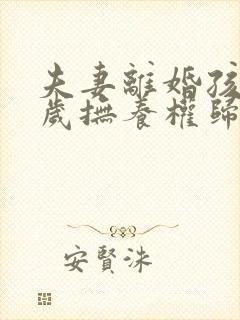 夫妻離婚孩
歲撫養權歸
安賢洙